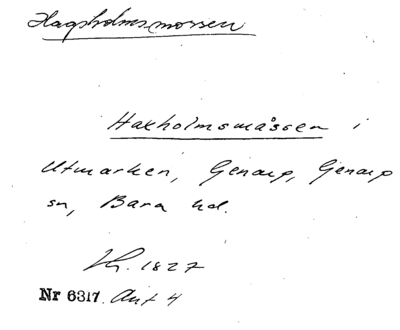 Hagsholmsmossen
Haxholmsmåssen i
Utmarken, Genarp, Genarp
sn, Bara hd.
Lk. 1827
Nr 6317. Akt 4